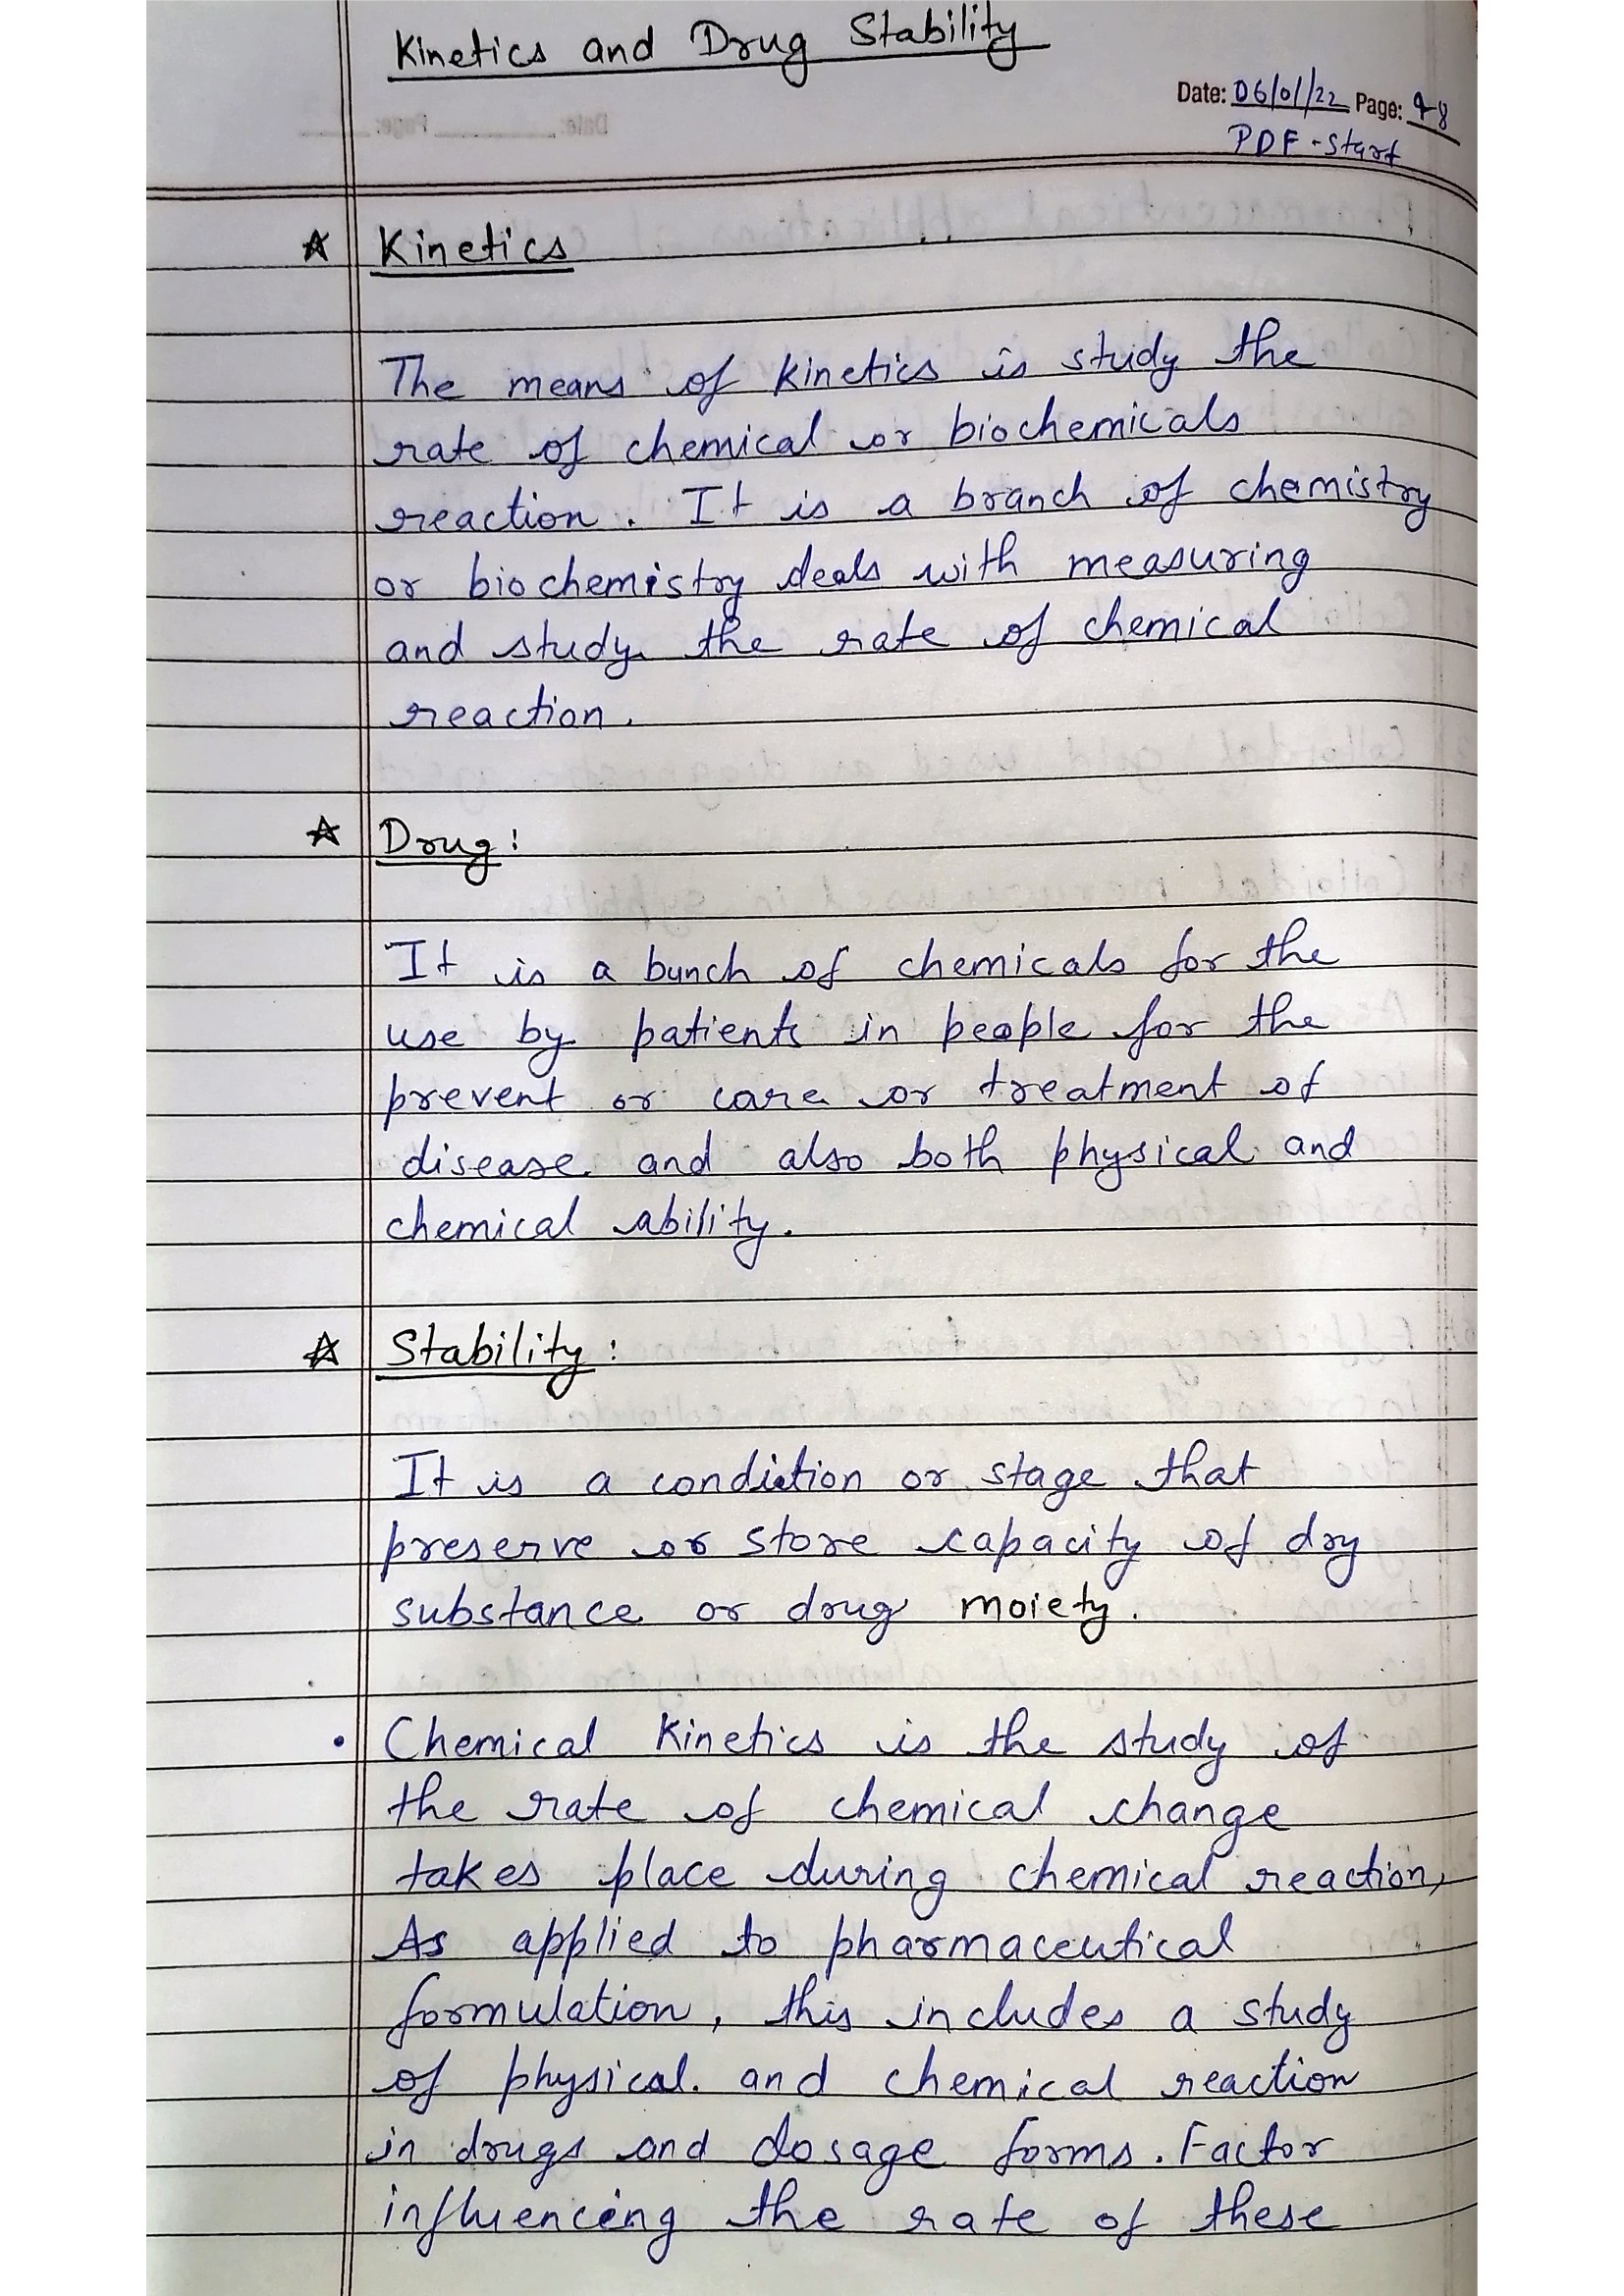 Kinetics and Drug Stability
Date: 06/01/22 Page: 9-8
PDF-start
☆ Kinetics
The means of kinetics is study the
rate of chemical or biochemicals
reaction. It is a branch of chemistry
or biochemistry deals with measuring
and study the rate of chemical
reaction.
☆ Drug:
It is a bunch of chemicals for the
use by patients in people for the
prevent or care or treatment of
disease and also both physical and
chemical ability.
☆ Stability:
It is a condiction or stage that
preserve or store capacity of dry
substance or drug moiety.
• Chemical Kinetics is the study of
the rate of chemical change
takes place during chemical reaction,
As applied to pharmaceutical
formulation, this includes a study
of physical. and chemical reaction
in drugs and dosage forms. Factor
influencing the rate of these